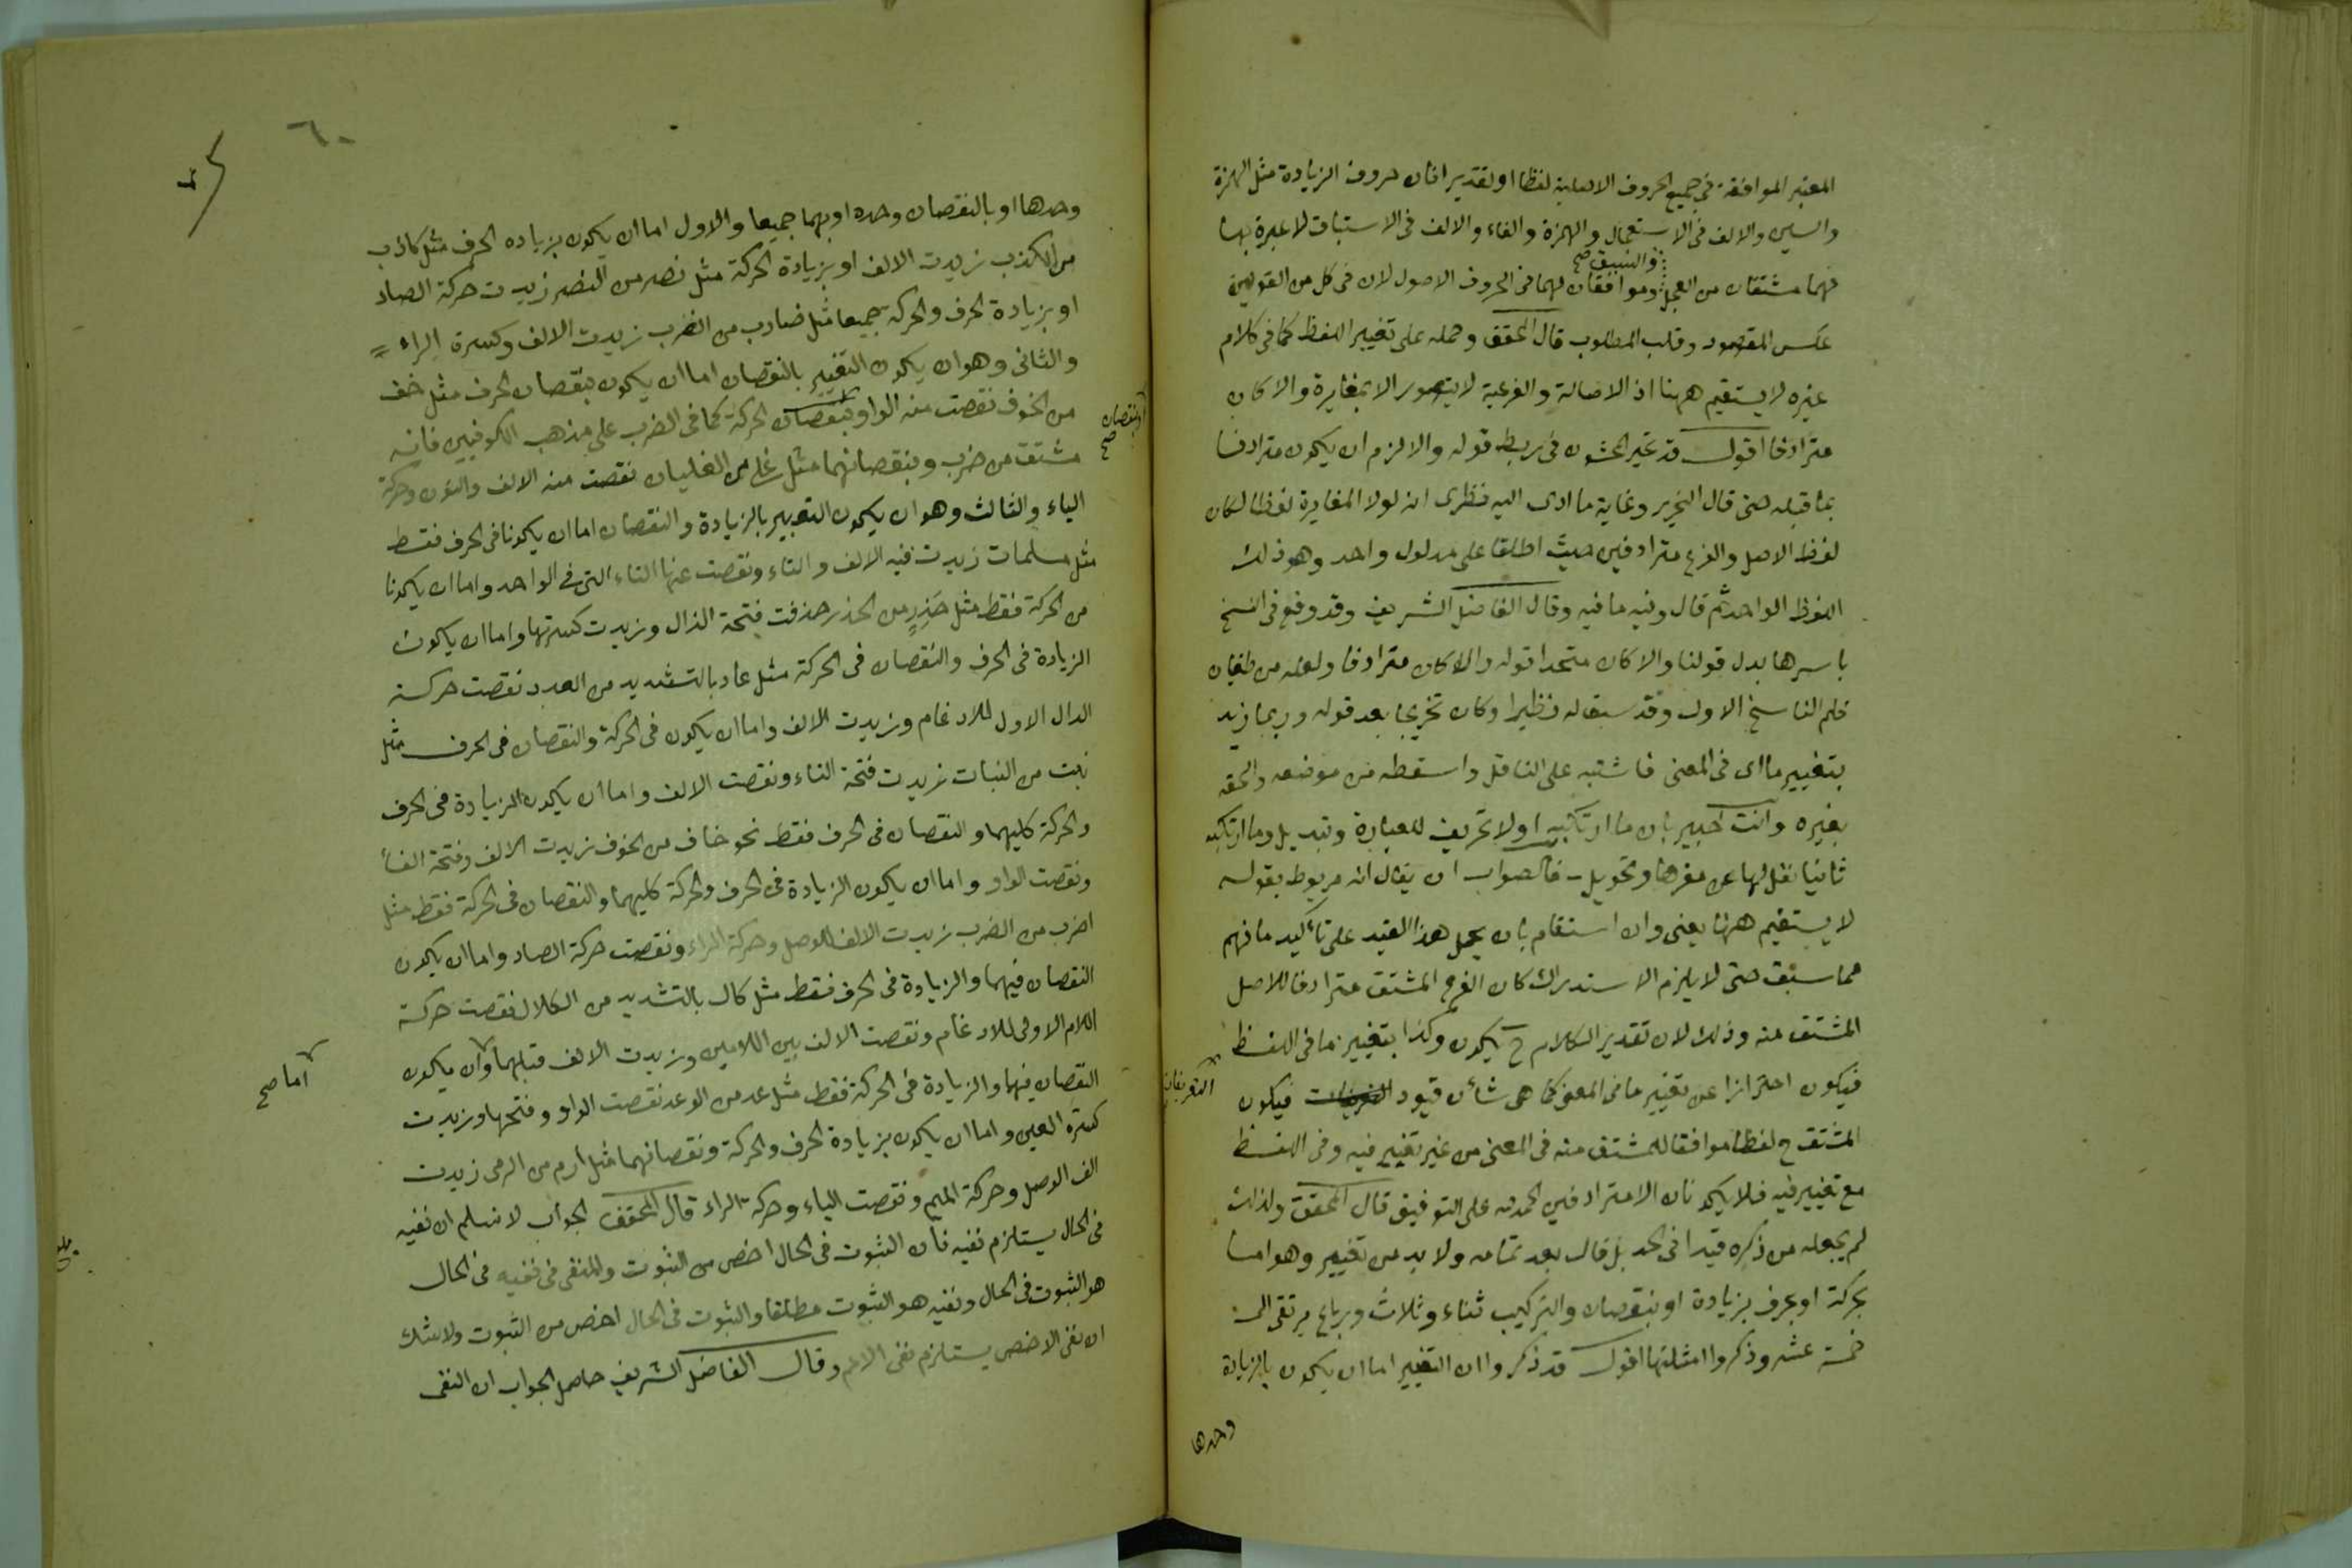 المعتبر الموافقة فى جميع الحروف الاصلية لفظا او تقديرا فان حروف الزيادة مثل الهمزة
والسين والالف فى الاستعجال والهمزة والفاء والالف فى الاستباق لا عبرة بها
والسبق صح
فهما مشتقان من العجل وموافقان لهما فى الحروف الاصول لان فى كل من القولين
عكس المقصود وقلب المطلوب قال المحقق وحمله على تغيير اللفظ كما فى كلام
غيره لا يستقيم ههنا اذ الاصالة والفرعية لا يتصور الا بمغايرة والا كان
مترادفا اقول قد تحير المحشون فى ربط قوله والا لزم ان يكون مترادفا
بما قبله حتى قال النحرير وغاية ما ادى اليه نظرى انه لولا المغايرة لفظا لكان
لفظ الاصل والفرع مترادفين حيث اطلقا على مدلول واحد وهو ذلك
اللفظ الواحد ثم قال وفيه ما فيه وقال الفاضل الشريف وقد وقع فى النسخ
باسرها بدل قولنا والا كان متحدا قوله والا كان مترادفا ولعله من طغيان
قلم الناسخ الاول وقد سبق له نظير اوكان تخريجا بعد قوله وربما زيد
بتغيير ما اى فى المعنى فاشتبه على الناقل واسقطه من موضعه والحقه
بغيره وانت خبير بان ما ارتكبه اولا تحريف للعبارة وتبديل وما ارتكبه
ثانيا نقل لها عن مقرها وتحويل فالصواب ان يقال انه مربوط بقوله
لا يستقيم ههنا يعنى وان استقام بان يحمل هذا القيد على تأكيد ما فهم
مما سبق حتى لا يلزم الاستدراك كان الفرع المشتق مترادفا للاصل
المشتق منه وذلك لان تقدير الكلام ح يكون وكذا بتغيير ما فى اللفظ
فيكون احترازا عن تغيير ما فى المعنى كما هى شأن قيود فيكون
التعريفات
المشتق ح لفظا موافقا للمشتق منه فى المعنى من غير تغيير فيه وفى اللفظ
مع تغيير فيه فلا يكونان الا مترادفين الحمد لله على التوفيق قال المحقق ولذلك
لم يجعله من ذكره قيدا فى الحد بل قال بعد تمامه ولا بد من تغيير وهو اما
بحركة او بحرف بزيادة او بنقصان والتركيب ثناء وثلاث ورباع يرتقى الى
خمسة عشر وذكروا امثلتها اقول قد ذكروا ان التغيير اما ان يكون بالزيادة
وحدها
٦٠
وحدها او بالنقصان وحده او بهما جميعا والاول اما ان يكون بزياده الحرف مثل كاذب
من الكذب زيدت الالف او بزيادة الحركة مثل نصر من النصر زيدت حركة الصاد
او بزيادة الحرف والحركة جميعا مثل ضارب من الضرب زيدت الالف وكسرة الراء
والثانى وهو ان يكون التغيير بالنقصان اما ان يكون بنقصان الحرف مثل خف
من الخوف نقصت منه الواو بنقصان الحركة كما فى الضرب على مذهب الكوفيين فانه
او بنقصان صح
مشتق من ضرب وبنقصانهما مثل غلى من الغليان نقصت منه الالف والنون وحركة
الياء والثالث وهو ان يكون التغيير بالزيادة والنقصان اما ان يكونا فى الحرف فقط
مثل مسلمات زيدت فيه الالف والتاء ونقصت عنها التاء التى فى الواحد واما ان يكونا
من الحركة فقط مثل حذر من الحذر حذفت فتحة الذال وزيدت كسرتها واما ان يكون
الزيادة فى الحرف والنقصان فى الحركة مثل عاد بالتشديد من العدد نقصت حركة
الدال الاول للادغام وزيدت الالف واما ان يكون فى الحركة والنقصان فى الحرف مثل
نبت من النبات زيدت فتحة التاء ونقصت الالف واما ان يكون الزيادة فى الحرف
والحركة كليهما والنقصان فى الحرف فقط نحو خاف من الخوف زيدت الالف وفتحة الفاء
ونقصت الواو واما ان يكون الزيادة فى الحرف والحركة كليهما والنقصان فى الحركة فقط مثل
اضرب من الضرب زيدت الالف للوصل وحركة الراء ونقصت حركة الضاد واما ان يكون
النقصان فيهما والزيادة فى الحرف فقط مثل كال بالتشديد من الكلال نقصت حركة
اللام الاولى للادغام ونقصت الالف بين اللامين وزيدت الالف قبلهما وان يكون
اما صح
النقصان فيهما والزيادة فى الحركة فقط مثل عد من الوعد نقصت الواو وفتحها وزيدت
كسرة العين واما ان يكون بزيادة الحرف والحركة ونقصانهما مثل ارم من الرمى زيدت
الف الوصل وحركة الميم ونقصت الياء وحركة الراء قال المحقق الجواب لا نسلم ان نفيه
فى الحال يستلزم نفيه فان الثبوت فى الحال اخص من الثبوت والمنفى فى نفيه فى الحال
هو الثبوت فى الحال ونفيه هو الثبوت مطلقا والثبوت فى الحال اخص من الثبوت ولا شك
ان نفى الاخص يستلزم نفى الاعم وقال الفاضل الشريف حاصل الجواب ان النفى